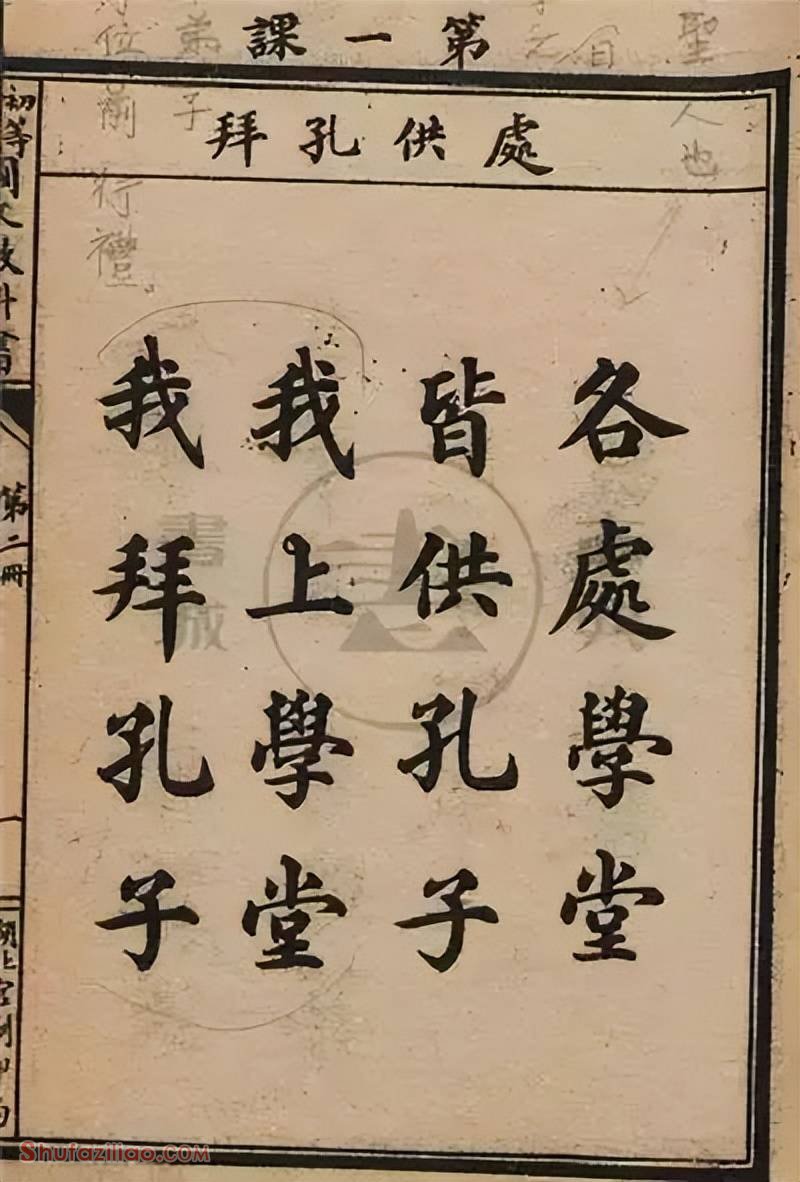 第一課
處供孔拜
各處學堂
皆供孔子
我上學堂
我拜孔子
初等國文教科書
第二冊
一
湖北官刷印局
聖
人也
自
弟子
位前行禮
書
Shufaziliao.com